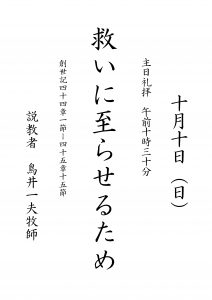 十月十日（日）
主日礼拝　午前十時三十分
救いに至らせるため
創世記四十四章一節－四十五章十五節
説教者　鳥井一夫牧師